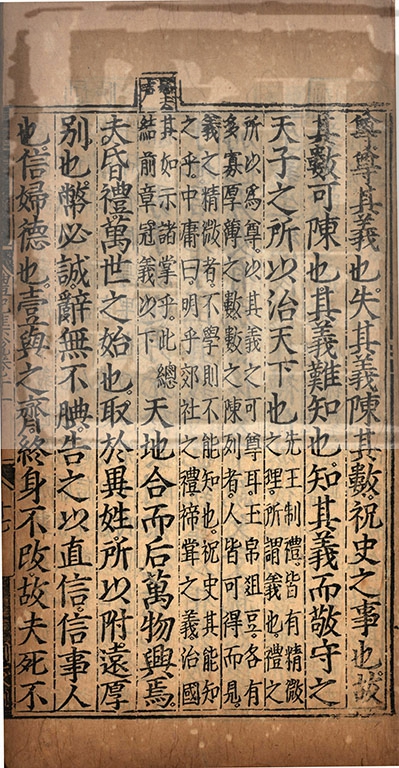 尊尊其義也。失其義陳其數。祝史之事也。故
其數可陳也。其義難知也。知其義而敬守之
天子之所以治天下也
先王制禮。皆有精微
之理。所謂義也。禮之
所以爲尊。以其義之可尊耳。玉帛俎豆。各有
多寡厚薄之數。數之陳列者。人皆可得而見。
義之精微者。不學則不能知也。祝史其能知
之乎。中庸曰。明乎郊社之禮。禘甞之義。治國
其如示諸掌乎。此總
結前章冠義以下
天地合而后萬物興焉。
夫昏禮。萬世之始也。取於異姓。所以附遠厚
別也。幣必誠。辭無不腆。告之以直信。信事人
也。信婦德也。壹與之齊。終身不改。故夫死不